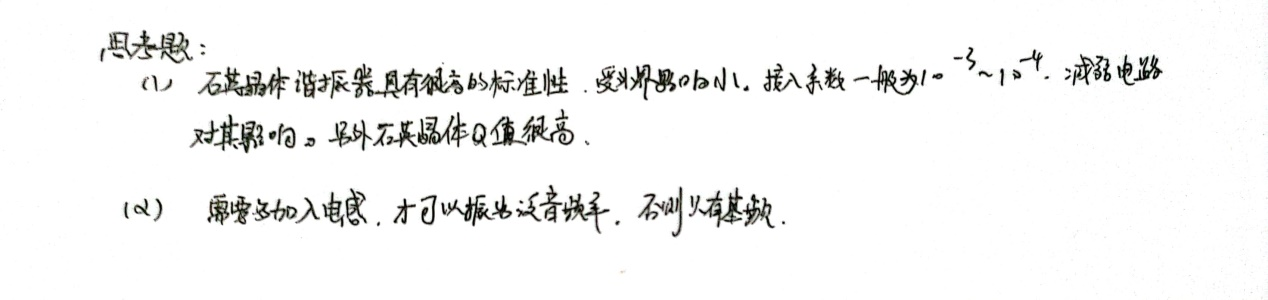 思考题：
(1) 石英晶体谐振器具有很高的标准性，受外界影响小。接入系数一般为10⁻³~10⁻⁴，减弱电路
对其影响。另外石英晶体Q值很高、
(2) 需要多加入电感，才可以振出泛音频率，否则只有基频.